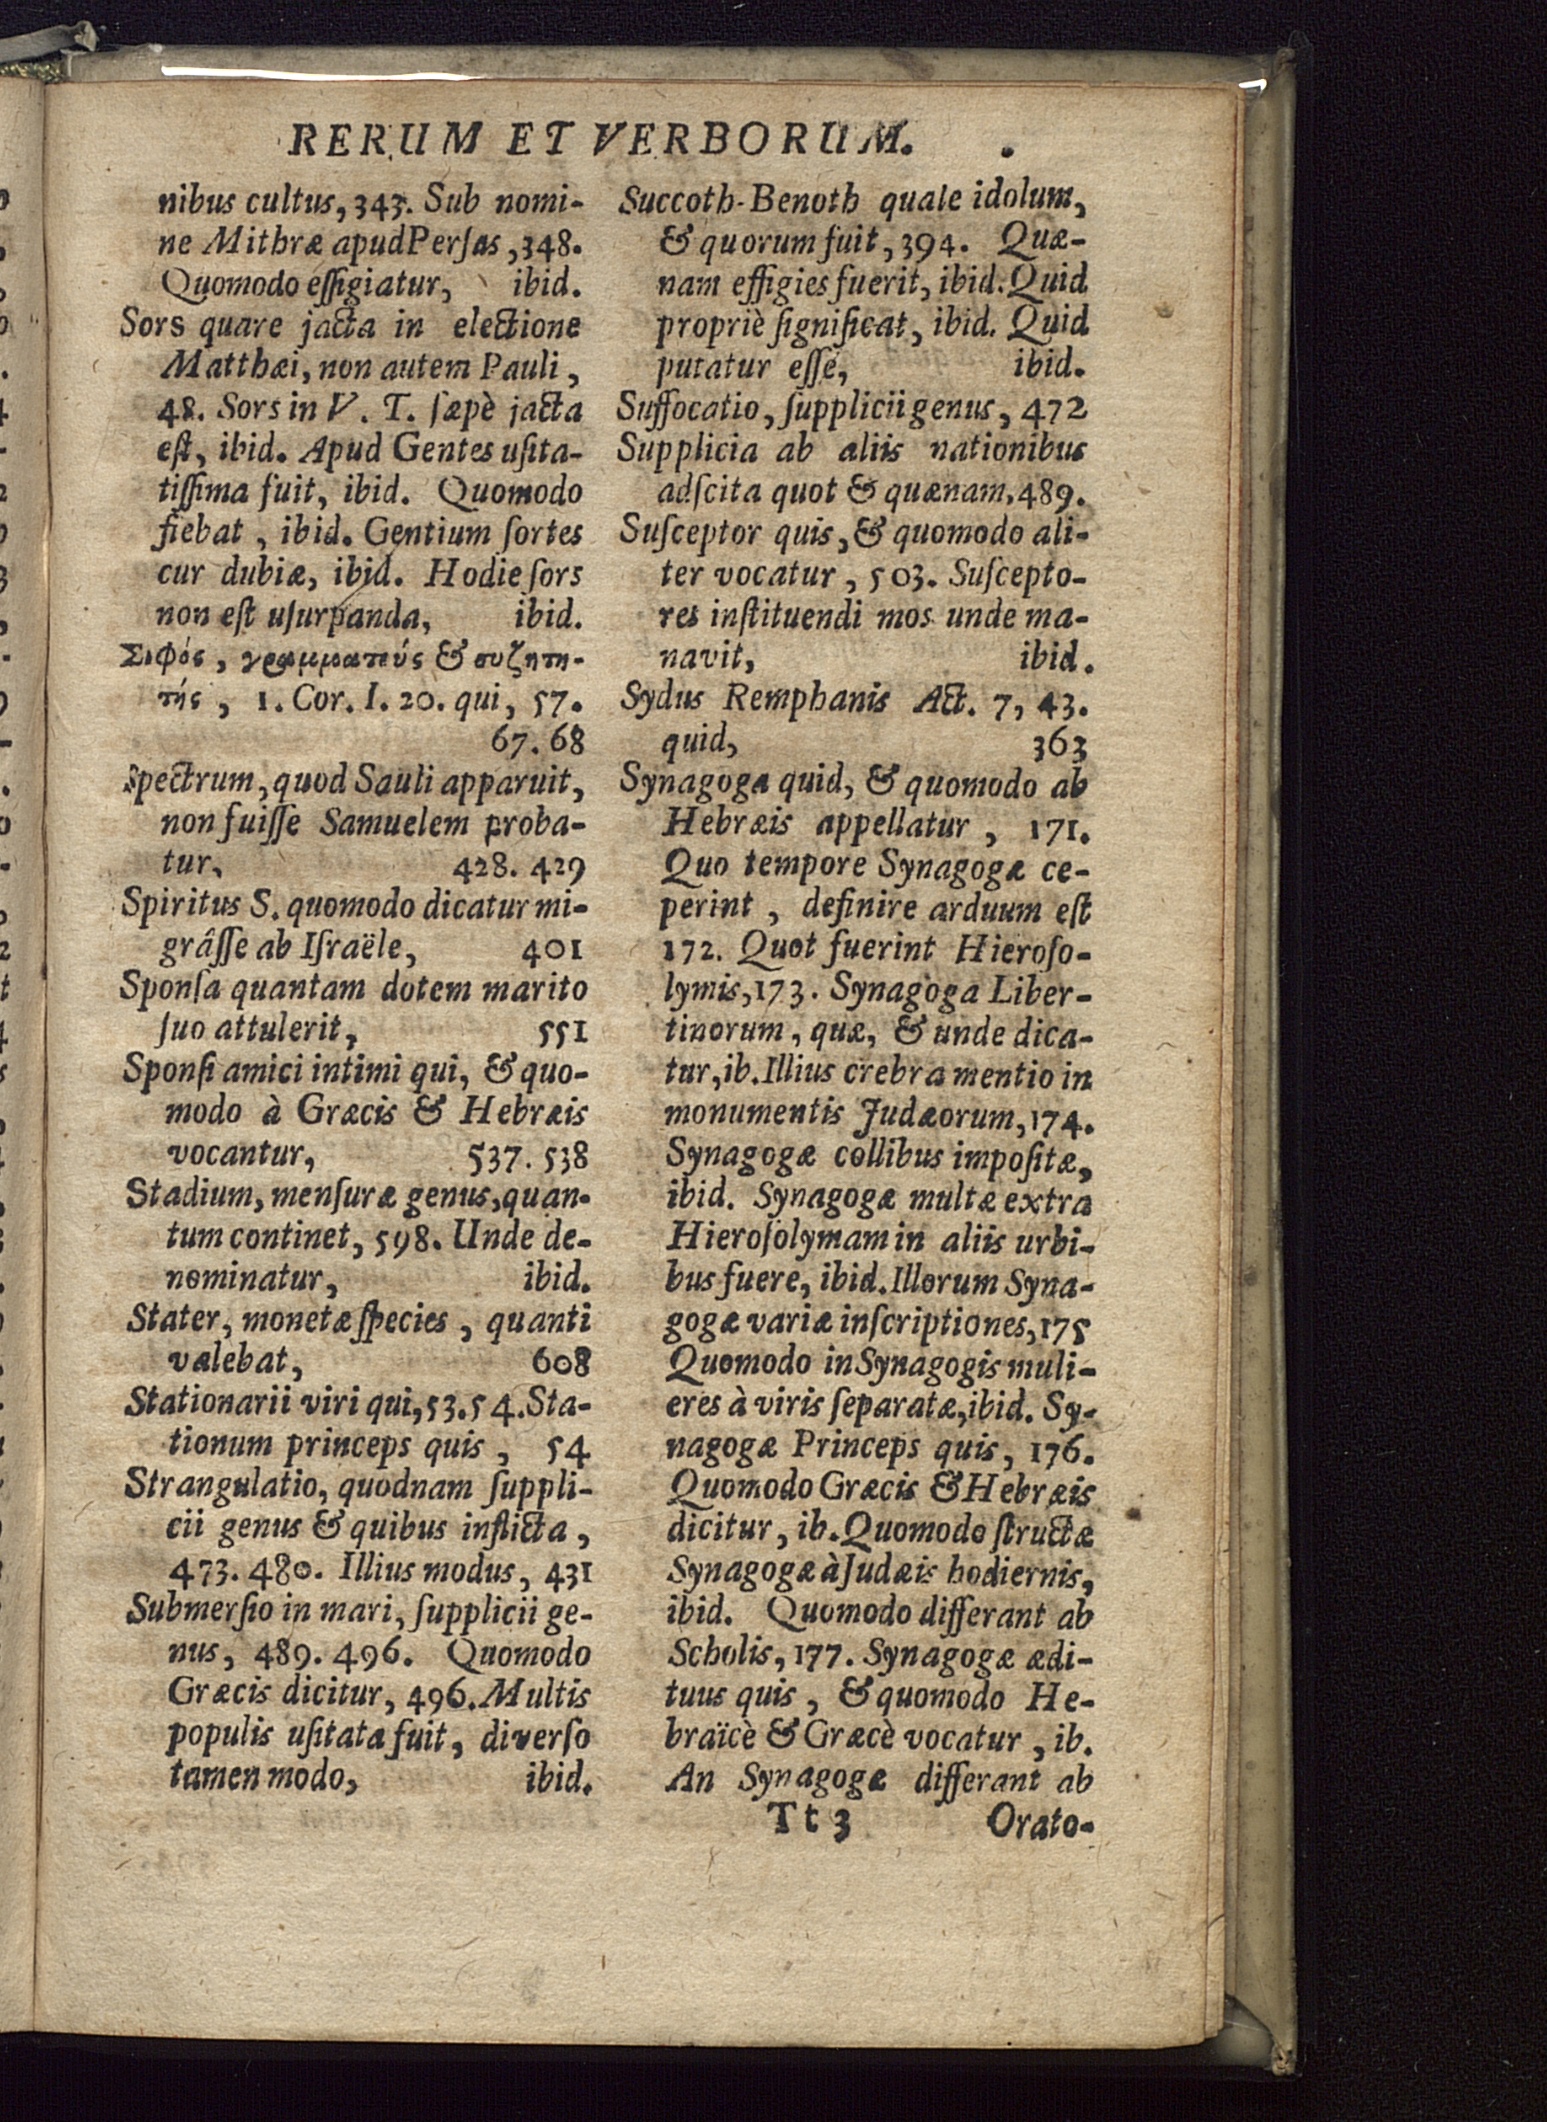 RERUM ET VERBORUM.
nibus cultus, 343. Sub nomi-
ne Mithræ apud Perſas, 348.
Quomodo effigiatur, ibid.
Sors quare jacta in electione
Matthæi, non autem Pauli,
48. Sors in V. T. ſæpè jacta
eſt, ibid. Apud Gentes uſita-
tiſſima fuit, ibid. Quomodo
fiebat, ibid. Gentium ſortes
cur dubiæ, ibid. Hodie ſors
non eſt uſurpanda, ibid.
Σοφός, γραμματεύς & συζητη-
τής, 1. Cor. I. 20. qui, 57.
67. 68
Spectrum, quod Sauli apparuit,
non fuiſſe Samuelem proba-
tur, 428. 429
Spiritus S. quomodo dicatur mi-
grâſſe ab Iſraële, 401
Sponſa quantam dotem marito
ſuo attulerit, 551
Sponſi amici intimi qui, & quo-
modo à Græcis & Hebræis
vocantur, 537. 538
Stadium, menſuræ genus, quan-
tum continet, 598. Unde de-
nominatur, ibid.
Stater, monetæ ſpecies, quanti
valebat, 608
Stationarii viri qui, 53. 54. Sta-
tionum princeps quis, 54
Strangulatio, quodnam ſuppli-
cii genus & quibus inflicta,
473. 480. Illius modus, 431
Submerſio in mari, ſupplicii ge-
nus, 489. 496. Quomodo
Græcis dicitur, 496. Multis
populis uſitata fuit, diverſo
tamen modo, ibid.
Succoth-Benoth quale idolum,
& quorum fuit, 394. Quæ-
nam effigies fuerit, ibid. Quid
propriè ſignificat, ibid. Quid
putatur eſſe, ibid.
Suffocatio, ſupplicii genus, 472
Supplicia ab aliis nationibus
adſcita quot & quænam, 489.
Suſceptor quis, & quomodo ali-
ter vocatur, 503. Suſcepto-
res inſtituendi mos unde ma-
navit, ibid.
Sydus Remphanis Act. 7, 43.
quid, 363
Synagoga quid, & quomodo ab
Hebræis appellatur, 171.
Quo tempore Synagogæ ce-
perint, definire arduum eſt
172. Quot fuerint Hieroſo-
lymis, 173. Synagoga Liber-
tinorum, quæ, & unde dica-
tur, ib. Illius crebra mentio in
monumentis Judæorum, 174.
Synagogæ collibus impoſitæ,
ibid. Synagogæ multæ extra
Hieroſolymam in aliis urbi-
bus fuere, ibid. Illorum Syna-
gogæ variæ inſcriptiones, 175
Quomodo in Synagogis muli-
eres à viris ſeparatæ, ibid. Sy-
nagogæ Princeps quis, 176.
Quomodo Græcis & Hebræis
dicitur, ib. Quomodo ſtructæ
Synagogæ à Judæis hodiernis,
ibid. Quomodo differant ab
Scholis, 177. Synagogæ ædi-
tuus quis, & quomodo He-
braïcè & Græcè vocatur, ib.
An Synagogæ differant ab
Tt 3 Orato-